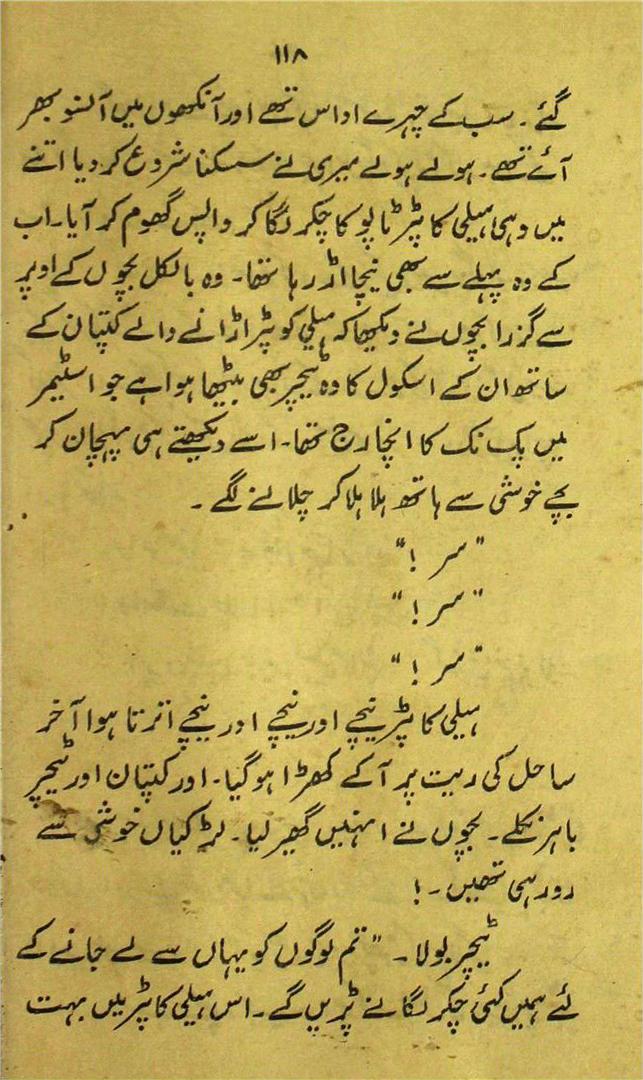 ۱۱۸
گئے۔ سب کے چہرے اداس تھے اور آنکھوں میں آنسو بھر
آئے تھے۔ ہولے ہولے میری نے سسکنا شروع کر دیا اتنے
میں وہی ہیلی کاپٹر ٹاپو کا چکر لگا کر واپس گھوم کر آیا۔ اب
کے وہ پہلے سے بھی نیچا اڑ رہا تھا۔ وہ بالکل بچوں کے اوپر
سے گزرا بچوں نے دیکھا کہ ہیلی کوپٹر اڑانے والے کپتان کے
ساتھ ان کے اسکول کا وہ ٹیچر بھی بیٹھا ہوا ہے جو اسٹیمر
میں پک نک کا انچارج تھا۔ اسے دیکھتے ہی پہچان کر
بچے خوشی سے ہاتھ ہلا ہلا کر چلانے لگے۔
"سر!"
"سر!"
"سر!"
ہیلی کاپٹر نیچے اور نیچے اور نیچے اترتا ہوا آخر
ساحل کی ریت پر آ کے کھڑا ہو گیا۔ اور کپتان اور ٹیچر
باہر نکلے۔ بچوں نے انہیں گھیر لیا۔ لڑکیاں خوشی سے
رو رہی تھیں۔!
ٹیچر بولا۔ "تم لوگوں کو یہاں سے لے جانے کے
لئے ہمیں کئی چکر لگانے پڑیں گے۔ اس ہیلی کاپٹر میں بہت